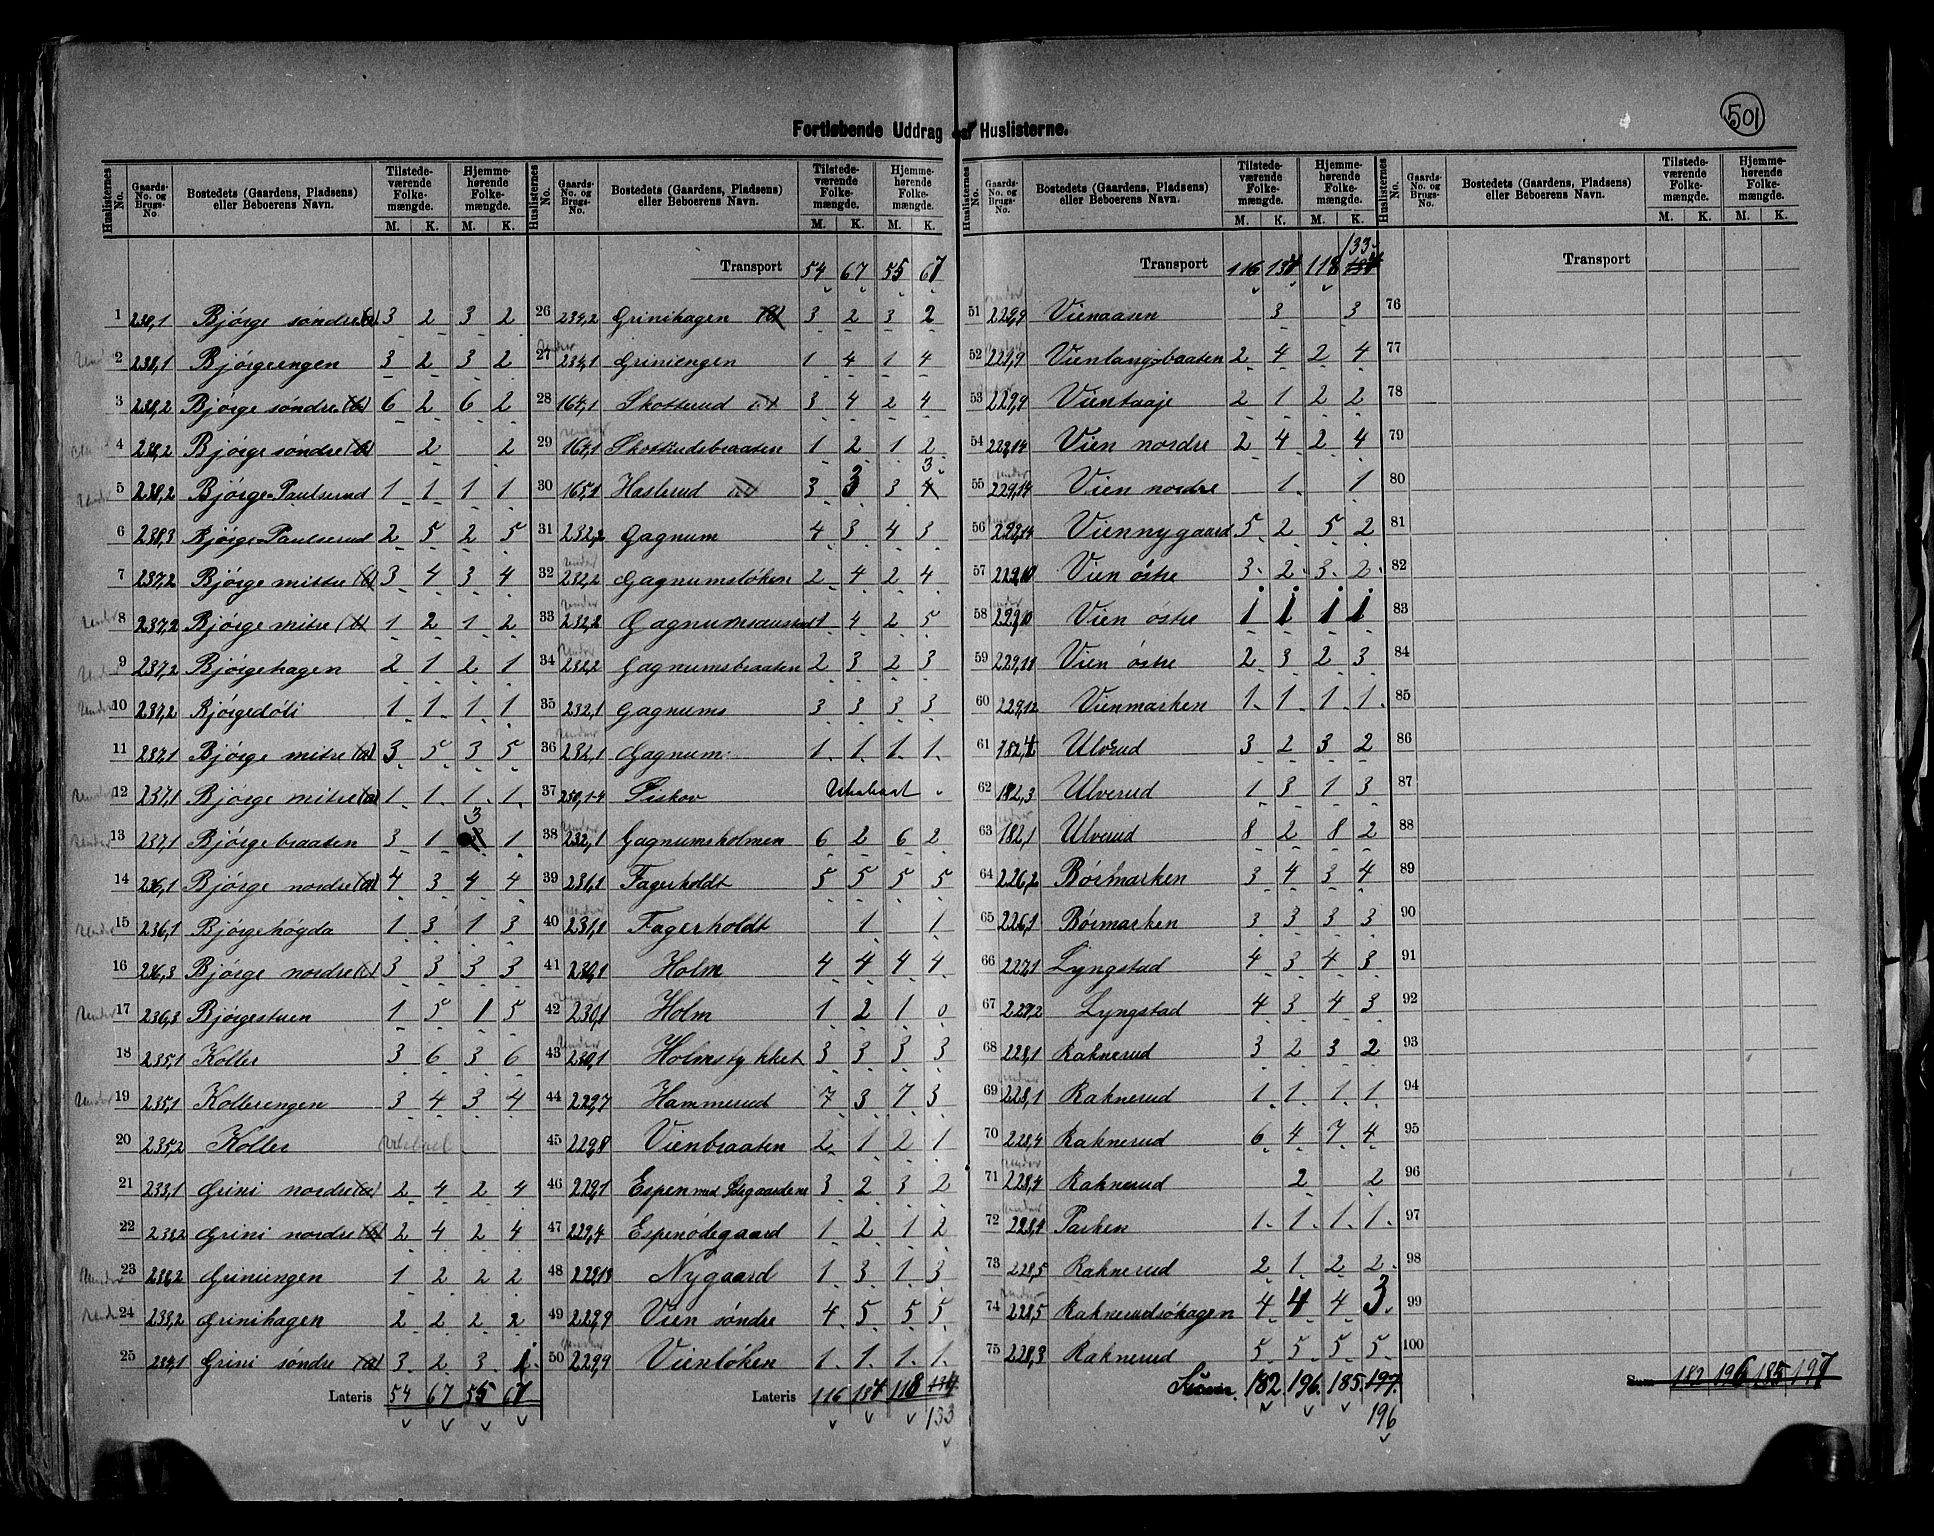 501
Fortløbende Uddrag af Huslisterne.
Huslisternes No. | Gaards-No. og Brugs-No. | Bostedets (Gaardens, Pladsens) eller Beboerens Navn. | Tilstedeværende Folkemængde. M. K. | Hjemmehørende Folkemængde. M. K.
1 238,1 Bjørge søndre (a) 3 2 3 2
2 238,1 Bjørgeengen 3 2 3 2
3 238,2 Bjørge søndre (b) 6 2 6 2
4 238,2 Bjørge søndre (b) 2 2
5 238,2 Bjørge Paulserud 1 1 1 1
6 238,3 Bjørge Paulserud 2 5 2 5
7 237,2 Bjørge mittre (b) 3 4 3 4
under 8 237,2 Bjørge mitre (b) 1 2 1 2
under 9 237,2 Bjørgehagen 2 1 2 1
under 10 237,2 Bjørgedøli 1 1 1 1
11 237,1 Bjørge mitre (a) 3 5 3 5
under 12 237,1 Bjørge mitre (a) 1 1 1 1
under 13 237,1 Bjørgebraaten 3 1 3 1
14 236,1 Bjørge nordre (a) 4 3 4 4
under 15 236,1 Bjørgehøgda 1 3 1 3
16 236,3 Bjørge nordre 3 3 3 3
under 17 236,3 Bjørgestuen 1 5 1 5
18 235,1 Koller 3 6 3 6
under 19 235,1 Kollerengen 3 4 3 4
20 235,2 Koller
21 233,1 Grini nordre (a) 2 4 2 4
22 233,2 Grini nordre (b) 2 4 2 4
under 23 233,2 Griniengen 1 2 2 2
under 24 233,2 Grinihagen 2 2 2 2
25 234,1 Grini søndre (a) 3 2 3 1
Lateris 54 67 55 67
Transport 54 67 55 67
26 234,2 Grinihagen 3 2 3 2
under 27 234,1 Griniengen 1 4 1 4
28 164,1 Skotterud 3 4 2 4
under 29 164,1 Skotterudsbraaten 1 2 1 2
30 165,1 Haslerud 3 3 3 4 3
31 232,2 Gagnum 4 3 4 3
under 32 232,2 Gagnumsløken 2 4 2 4
under 33 232,2 Gagnumsaustad 1 4 2 5
under 34 232,2 Gagnumsbraaten 2 3 2 3
35 232,1 Gagnums 3 3 3 3
under 36 232,1 Gagnum 1 1 1 1
37 250,14 Siskov Ubeboet
under 38 232,1 Gagnumsholmen 6 2 6 2
39 231,1 Fagerholdt 5 5 5 5
under 40 231,1 Fagerholdt 1 1
41 230,1 Holm 4 4 4 4
under 42 230,1 Holm 1 2 1 0
under 43 230,1 Holmstykket 3 3 3 3
44 229,7 Hammerud 7 3 7 3
45 229,8 Vienbraaten 2 1 2 1
46 229,1 Espen med Ødegaardene 3 2 3 2
47 229,4 Espenødegaard 1 2 1 2
48 229,13 Nygaard 1 3 1 3
49 229,9 Vien søndre 4 5 5 5
under 50 229,9 Vienløken 1 1 1 1
Lateris 116 134 118 134 133
Transport 116 134 118 134 133
under 51 229,9 Vienaasen 3 3
under 52 229,9 Vienlangsbraaten 2 4 2 4
under 53 229,9 Vientaaje 2 1 2 2
54 229,14 Vien nordre 2 4 2 4
under 55 229,14 Vien nordre 1 1
under 56 229,14 Viennygaard 5 2 5 2
57 229,10 Vien østre 3 2 3 2
under 58 229,10 Vien østre 1 1 1 1
59 229,11 Vien østre 2 3 2 3
60 229,12 Vienmarken 1 1 1 1
61 182,4 Ulverud 3 2 3 2
62 182,3 Ulverud 1 3 1 3
under 63 182,1 Ulverud 8 2 8 2
64 226,2 Børmarken 3 4 3 4
65 226,1 Børmarken 3 3 3 3
66 227,1 Lyngstad 4 3 4 3
67 227,2 Lyngstad 4 3 4 3
68 228,1 Raknerud 3 2 3 2
under 69 228,1 Raknerud 1 1 1 1
70 228,4 Raknerud 6 4 7 4
under 71 228,4 Raknerud 2 2
under 72 228,4 Parken 1 1 1 1
73 228,5 Raknerud 2 1 2 2
under 74 228,5 Raknerudsøhagen 4 4 4 3
75 228,3 Raknerud 5 5 5 5
182 196 185 197 196
Transport
76
77
78
79
80
81
82
83
84
85
86
87
88
89
90
91
92
93
94
95
96
97
98
99
100
Sum 182 196 185 197